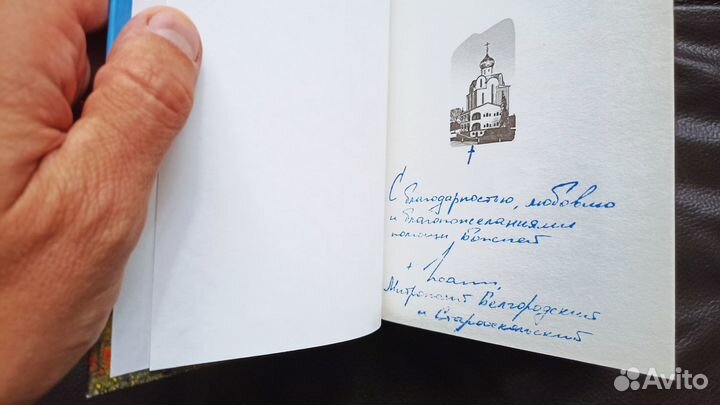 С благодарностью, любовью
и благопожеланиями
помощи Божией
+ Иоанн,
Митрополит Белгородский
и Старооскольский
Avito